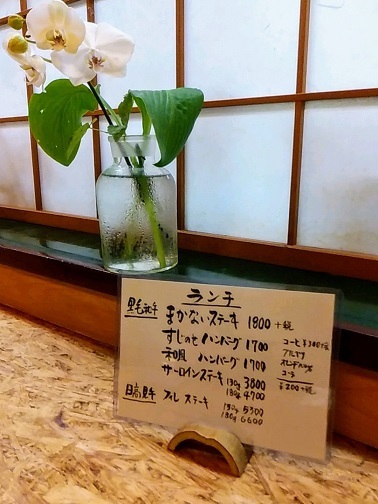 ランチ
黒毛和牛
まかないステーキ 1800 +税
すじのせ ハンバーグ 1700
和風 ハンバーグ 1700
サーロインステーキ 130g 3800
180g 4700
フィレ ステーキ
130g 5300
180g 6600
コーヒー ¥300+税
コーラ
¥200+税